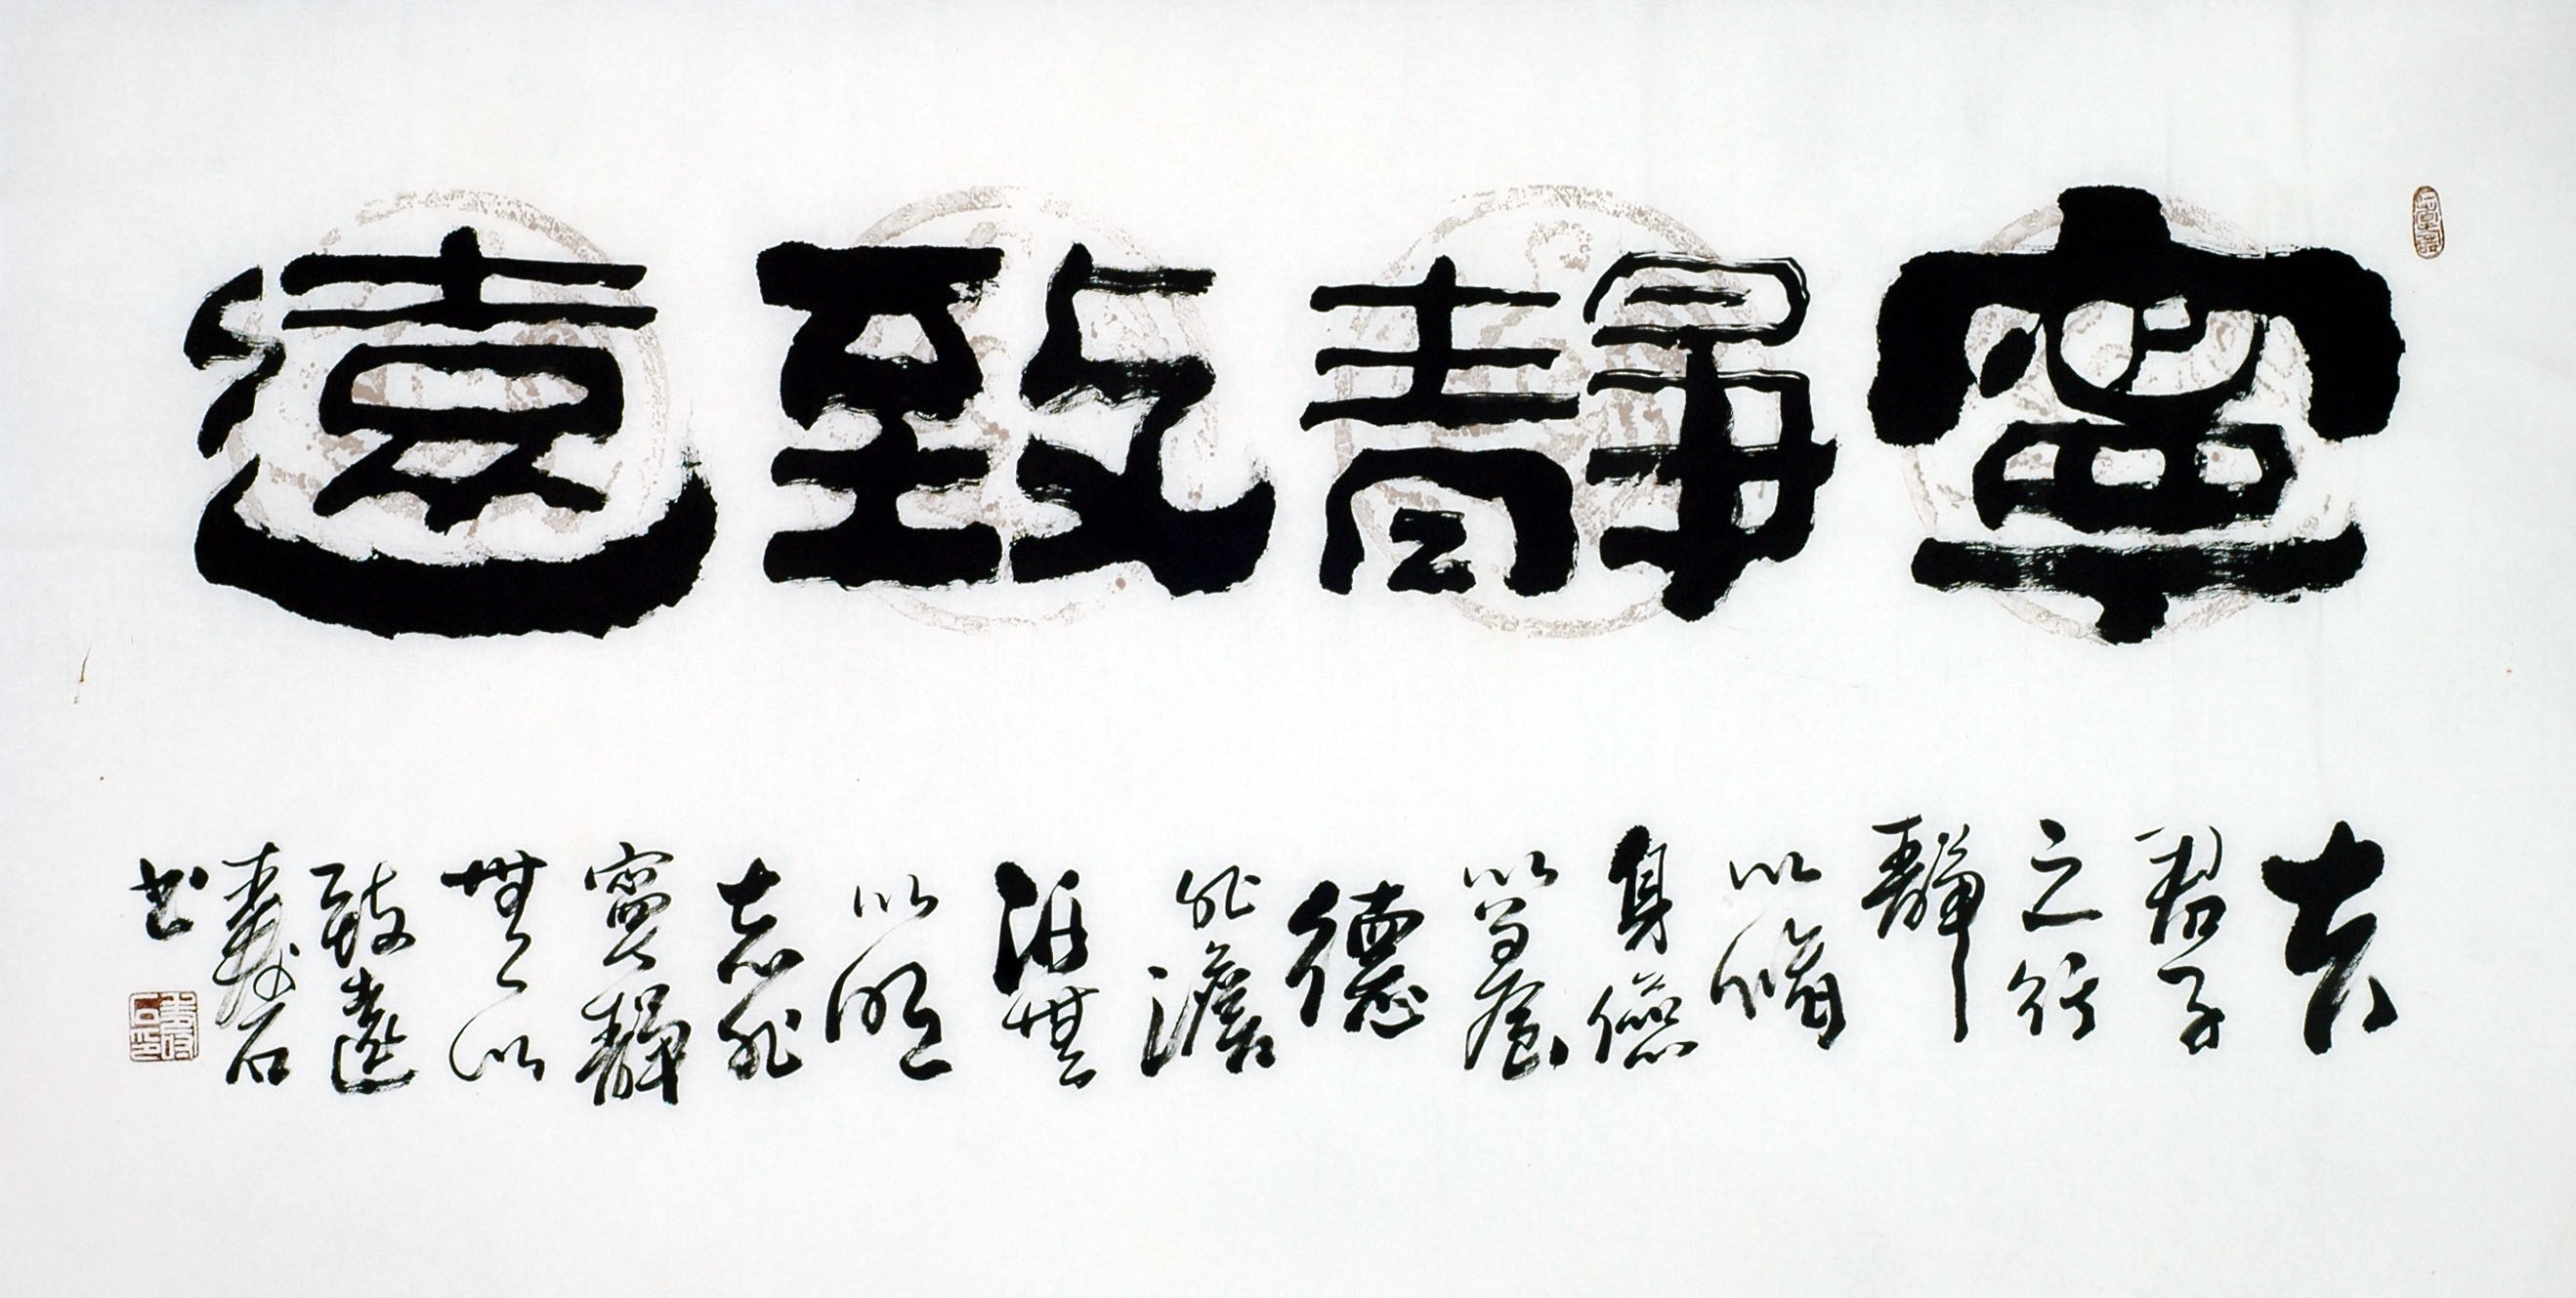 寧靜致遠
夫
君子
之行
靜
以脩
身儉
以養
德
非澹
泊無
以明
志非
寧靜
無以
致遠
壽石
书